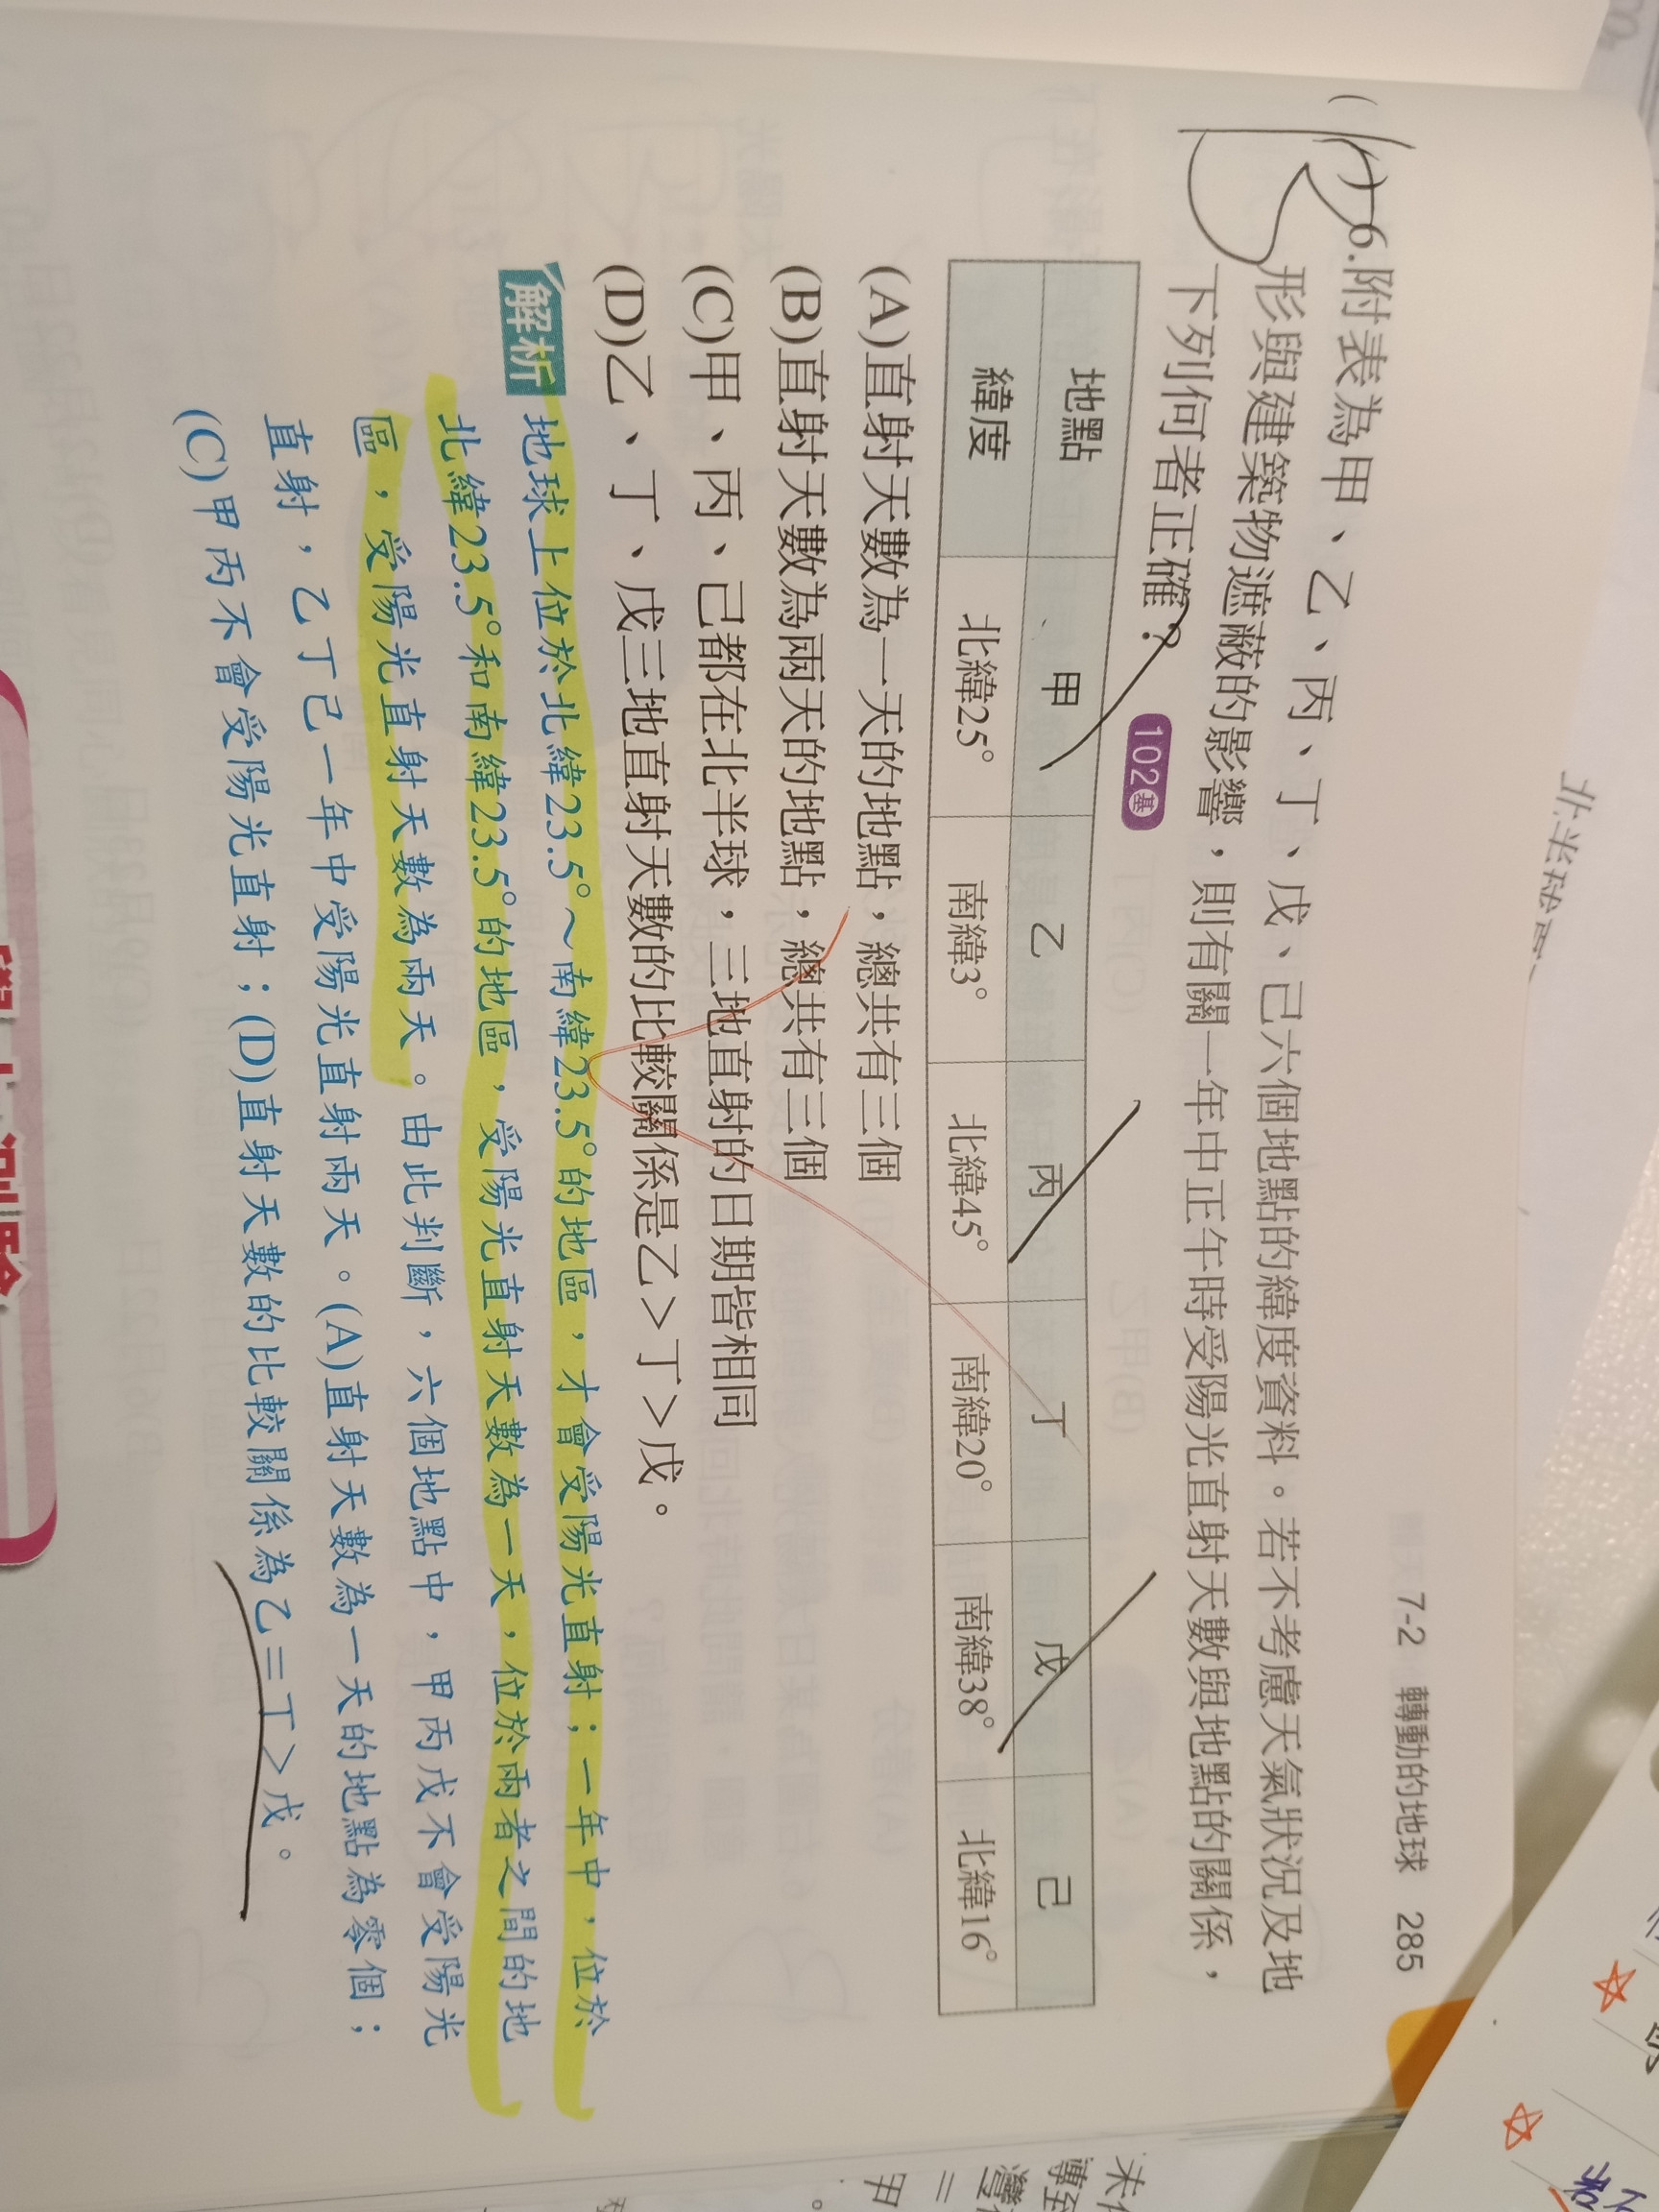 7-2 轉動的地球 285
( )6.附表為甲、乙、丙、丁、戊、己六個地點的緯度資料。若不考慮天氣狀況及地
形與建築物遮蔽的影響，則有關一年中正午時受陽光直射天數與地點的關係，
下列何者正確？ 102基
地點 甲 乙 丙 丁 戊 己
緯度 北緯25° 南緯3° 北緯45° 南緯20° 南緯38° 北緯16°
(A)直射天數為一天的地點，總共有三個
(B)直射天數為兩天的地點，總共有三個
(C)甲、丙、己都在北半球，三地直射的日期皆相同
(D)乙、丁、戊三地直射天數的比較關係是乙＞丁＞戊。
解析 地球上位於北緯23.5°～南緯23.5°的地區，才會受陽光直射；一年中，位於
北緯23.5°和南緯23.5°的地區，受陽光直射天數為一天，位於兩者之間的地
區，受陽光直射天數為兩天。由此判斷，六個地點中，甲丙戊不會受陽光
直射，乙丁己一年中受陽光直射兩天。(A)直射天數為一天的地點為零個；
(C)甲丙不會受陽光直射；(D)直射天數的比較關係為乙＝丁＞戊。